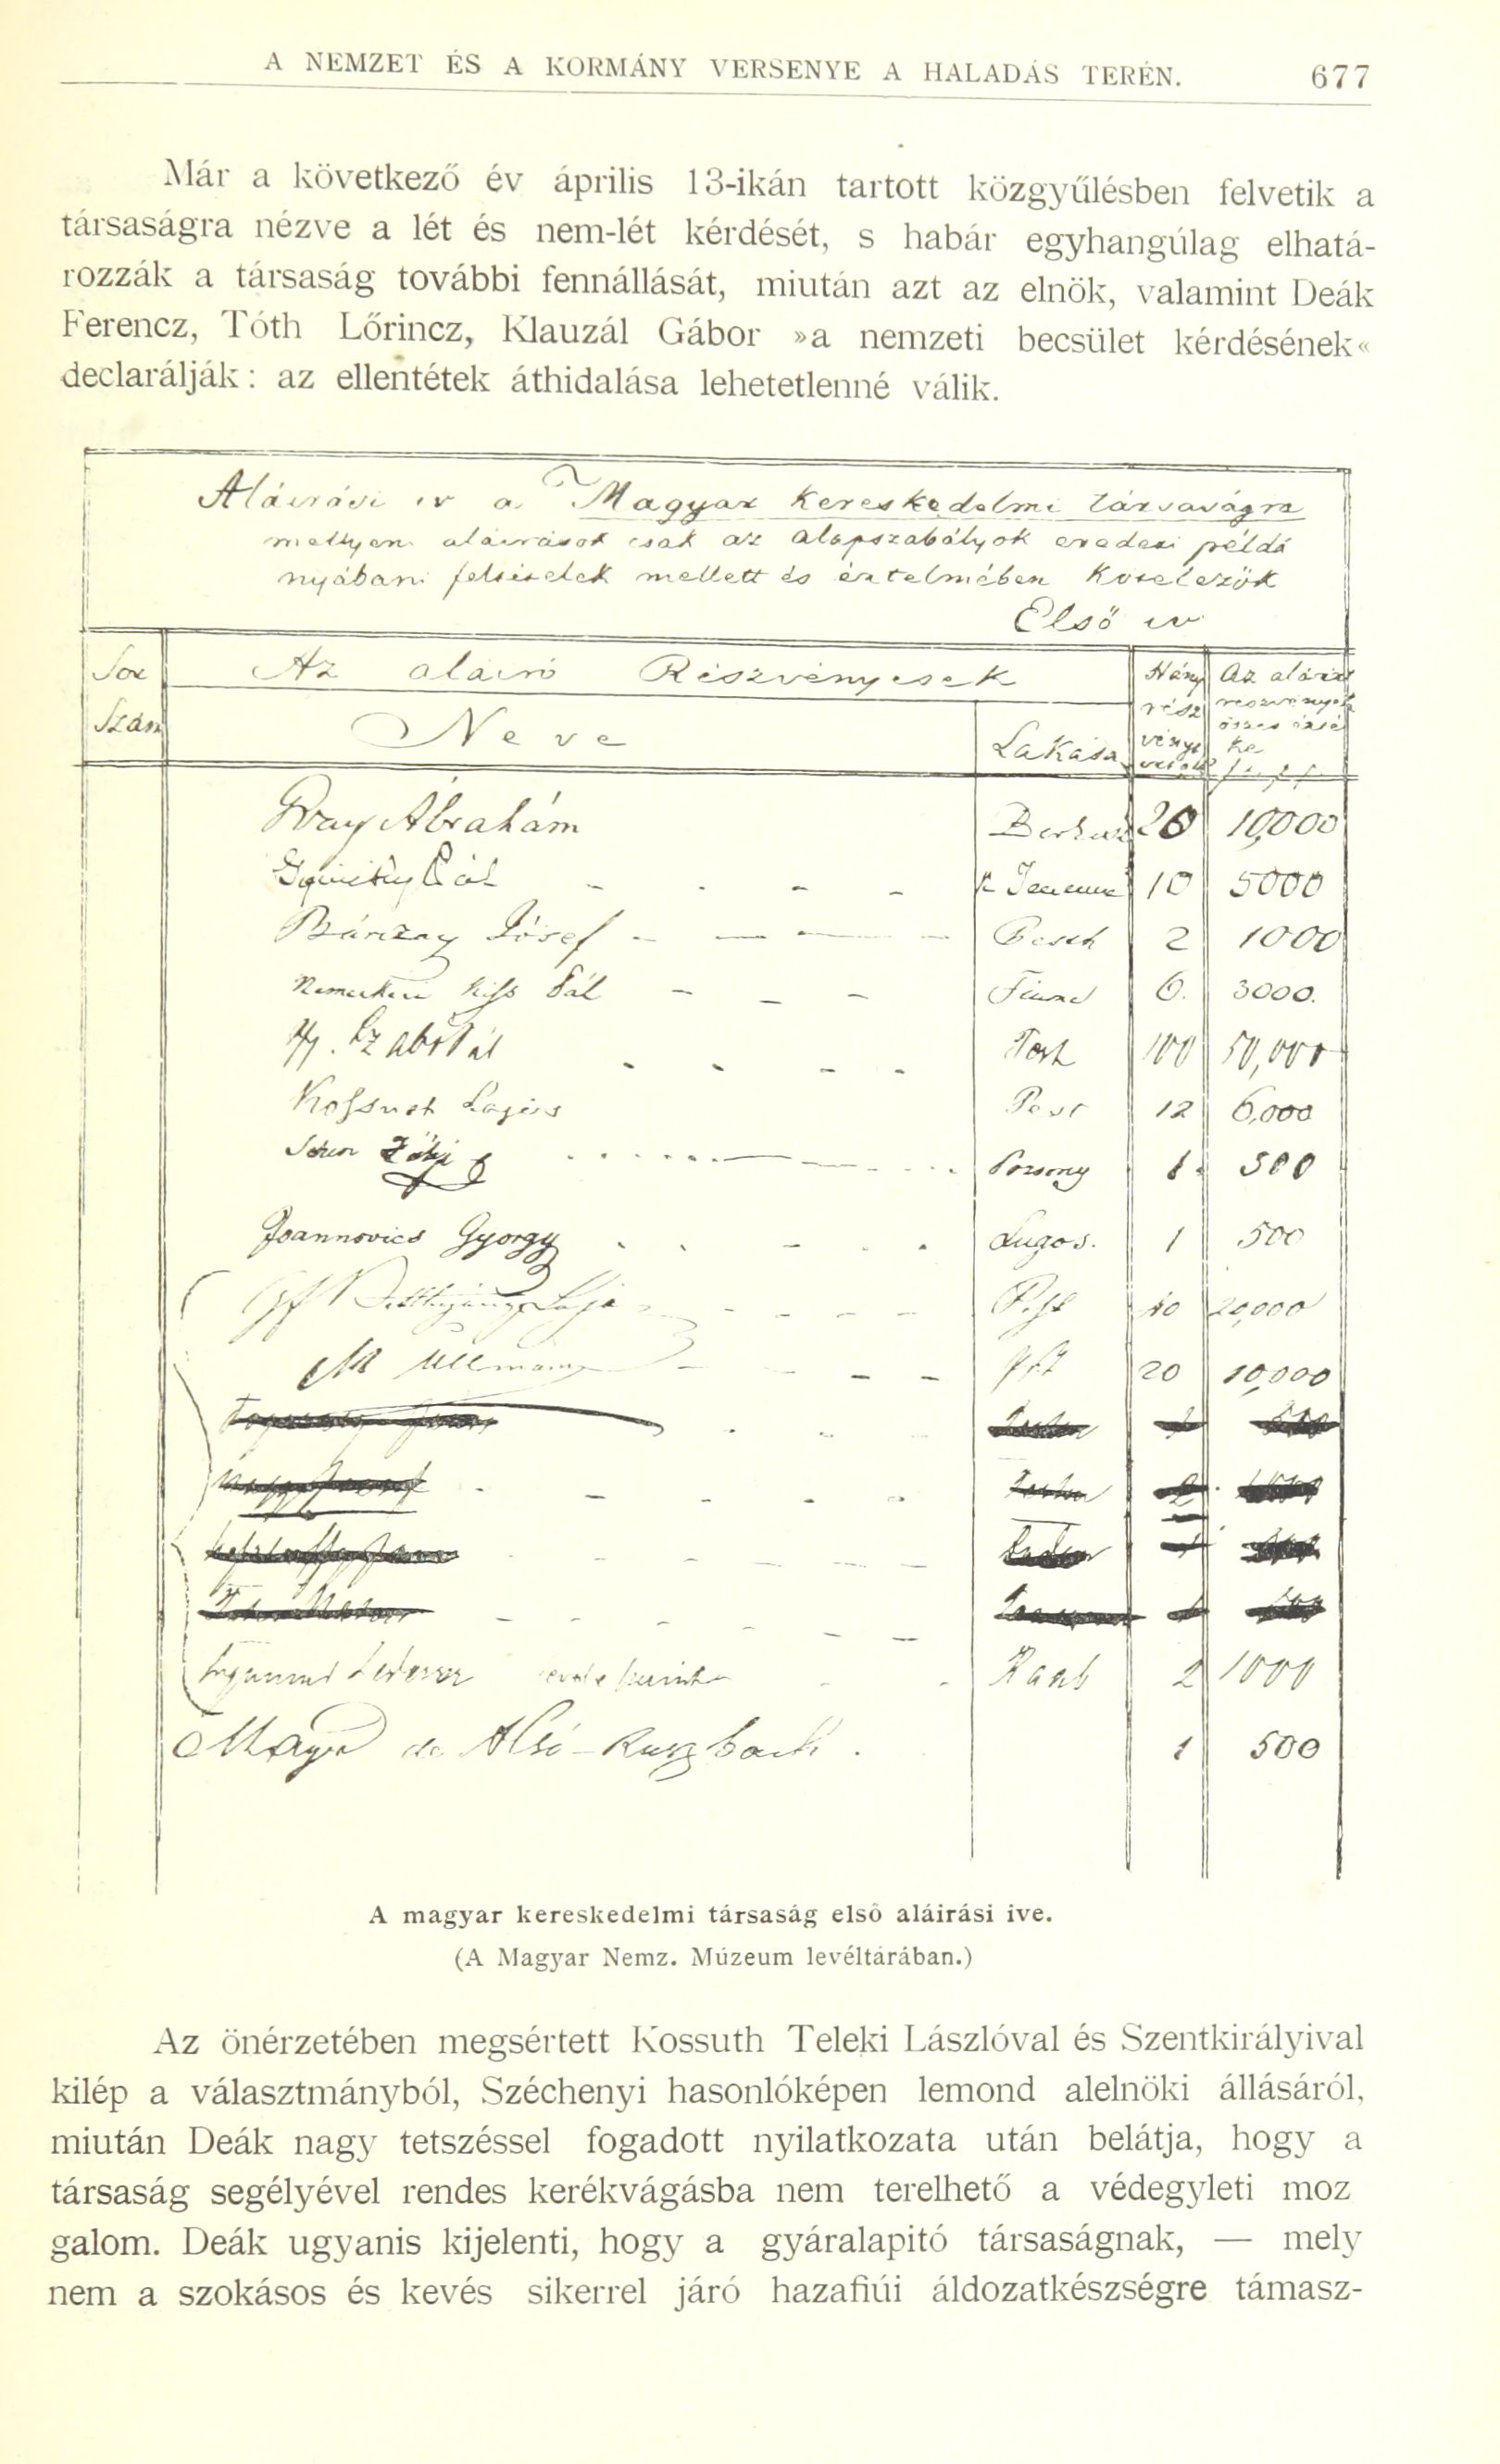 A NEMZET ÉS A KORMÁNY VERSENYE A HALADÁS TERÉN. 677
Már a következő év április 13-ikán tartott közgyűlésben felvetik a
társaságra nézve a lét és nem-lét kérdését, s habár egyhangúlag elhatá-
rozzák a társaság további fennállását, miután azt az elnök, valamint Deák
Ferencz, Tóth Lőrincz, Klauzál Gábor »a nemzeti becsület kérdésének«
declarálják: az ellentétek áthidalása lehetetlenné válik.
Aláirási iv a Magyar Kereskedelmi társaságra
mellyen aláirások csak az alapszabályok eredeti példá
nyábani feltételek mellett és értelmében Kötelezők
Első iv
Sor Az aláiró Részvényesek Hány Az aláirt
Szám Neve Lakása rész részvények
vényt összes érté
ke
Ábrahám 20 10,000
Pál 10 5000
József Pesth 2 1000
Kiss Pál Fiume 6. 3000.
Szabó Pál Pest 100 50,000
Kossuth Lajos Pest 12 6,000
Posony 1 500
Joannovics György Lugos. 1 500
Gf Batthyány Lajos Pest 40 20,000
M Ullmann Pest 20 10,000
Lederer Raab 2 1000
Mayr de Alsó-Ruszbach. 1 500
A magyar kereskedelmi társaság első aláirási ive.
(A Magyar Nemz. Múzeum levéltárában.)
Az önérzetében megsértett Kossuth Teleki Lászlóval és Szentkirályival
kilép a választmányból, Széchenyi hasonlóképen lemond alelnöki állásáról,
miután Deák nagy tetszéssel fogadott nyilatkozata után belátja, hogy a
társaság segélyével rendes kerékvágásba nem terelhető a védegyleti moz
galom. Deák ugyanis kijelenti, hogy a gyáralapitó társaságnak, — mely
nem a szokásos és kevés sikerrel járó hazafiúi áldozatkészségre támasz-